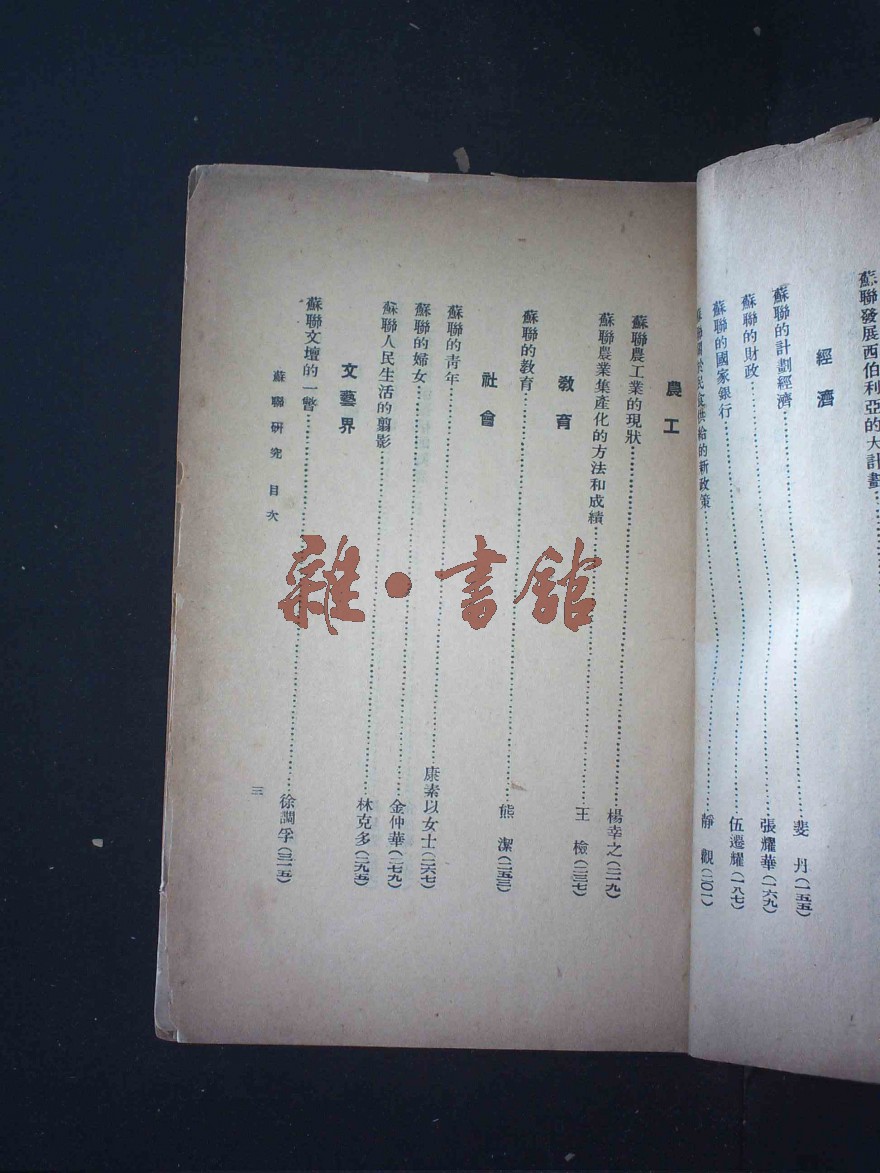 蘇聯發展西伯利亞的大計畫…………
經濟
蘇聯的計劃經濟…………裴丹(一五五)
蘇聯的財政…………張耀華(一六九)
蘇聯的國家銀行…………伍遷耀(一八七)
蘇聯關於民食供給的新政策…………靜觀(二〇一)
農工
蘇聯農工業的現狀…………楊幸之(二一九)
蘇聯農業集產化的方法和成績…………王檢(二三七)
教育
蘇聯的教育…………熊潔(二五三)
社會
蘇聯的青年…………康素以女士(二六七)
蘇聯的婦女…………金仲華(二七九)
蘇聯人民生活的翦影…………林克多(二九五)
文藝界
蘇聯文壇的一瞥…………徐調孚(三一五)
蘇聯研究 目次
三
雜·書館